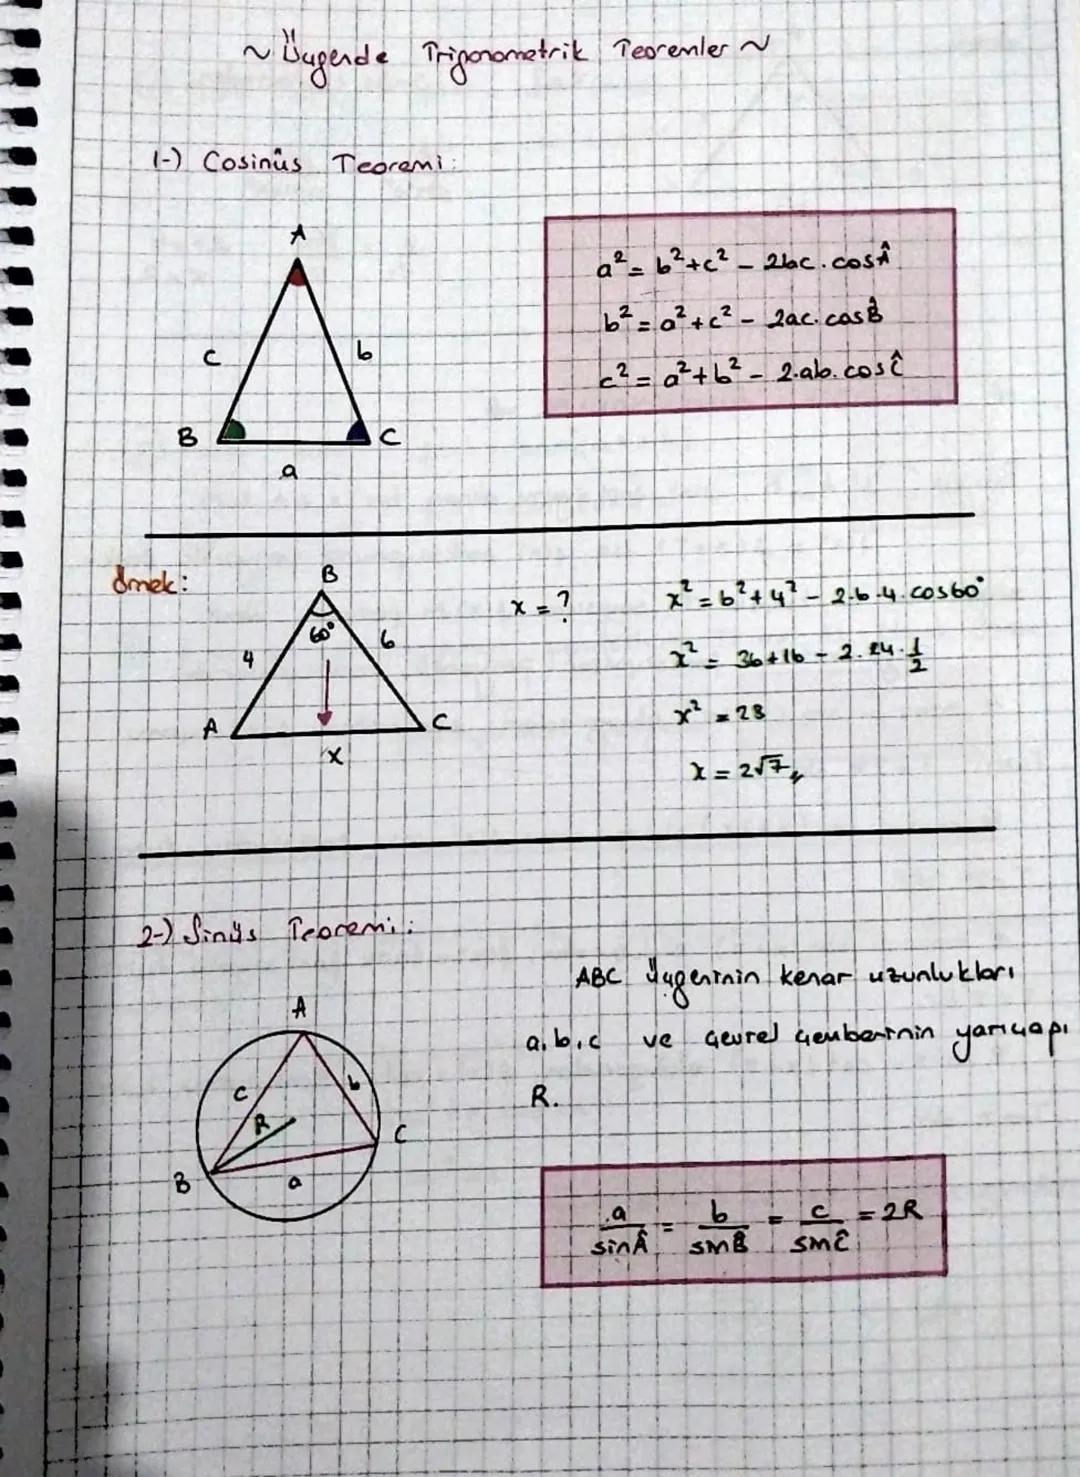 ~ Üçgende Trigonometrik Teoremler ~
1-) Cosinüs Teoremi:
A
c
b
B
C
a
a² = b² + c² - 2bc . cosÂ
b² = a² + c² - 2ac. cosB̂
c² = a² + b² - 2.ab. cosĈ
Örnek:
B
60°
4
6
A
C
x
x = ?
x² = 6² + 4² - 2.6.4. cos60°
x² = 36+16 - 2.24. 1/2
x² = 28
x = 2√7,,
2-) Sinüs Teoremi:
A
c
b
R
C
B
a
ABC Üçgeninin kenar uzunlukları
a, b, c ve çevrel çemberinin yarıçapı
R.
a/sinÂ = b/sinB̂ = c/sinĈ = 2R